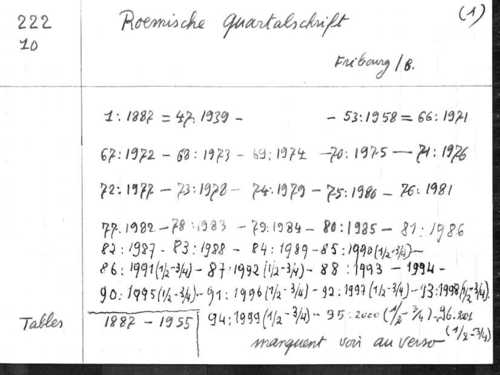 222 Roemische Quartalschrift (1)
10
Fribourg/B.
1:1887 = 47:1939 - - 53:1958 = 66:1971
67:1972 - 68:1973 - 69:1974 - 70:1975 - 71:1976
72:1977 - 73:1978 - 74:1979 - 75:1980 - 76:1981
77:1982 - 78:1983 - 79:1984 - 80:1985 - 81:1986
82:1987 - 83:1988 - 84:1989 - 85:1990 (1/2-3/4) -
86:1991 (1/2-3/4) - 87:1992 (1/2-3/4) - 88:1993 - 1994 -
90:1995 (1/2-3/4) - 91:1996 (1/2-3/4) - 92:1997 (1/2-3/4) - 93:1998 (1/2-3/4)
Tables 1887 - 1955 94:1999 (1/2-3/4) - 95:2000 (1/2-3/4) - 96.2001 (1/2-3/4)
manquent voir au verso